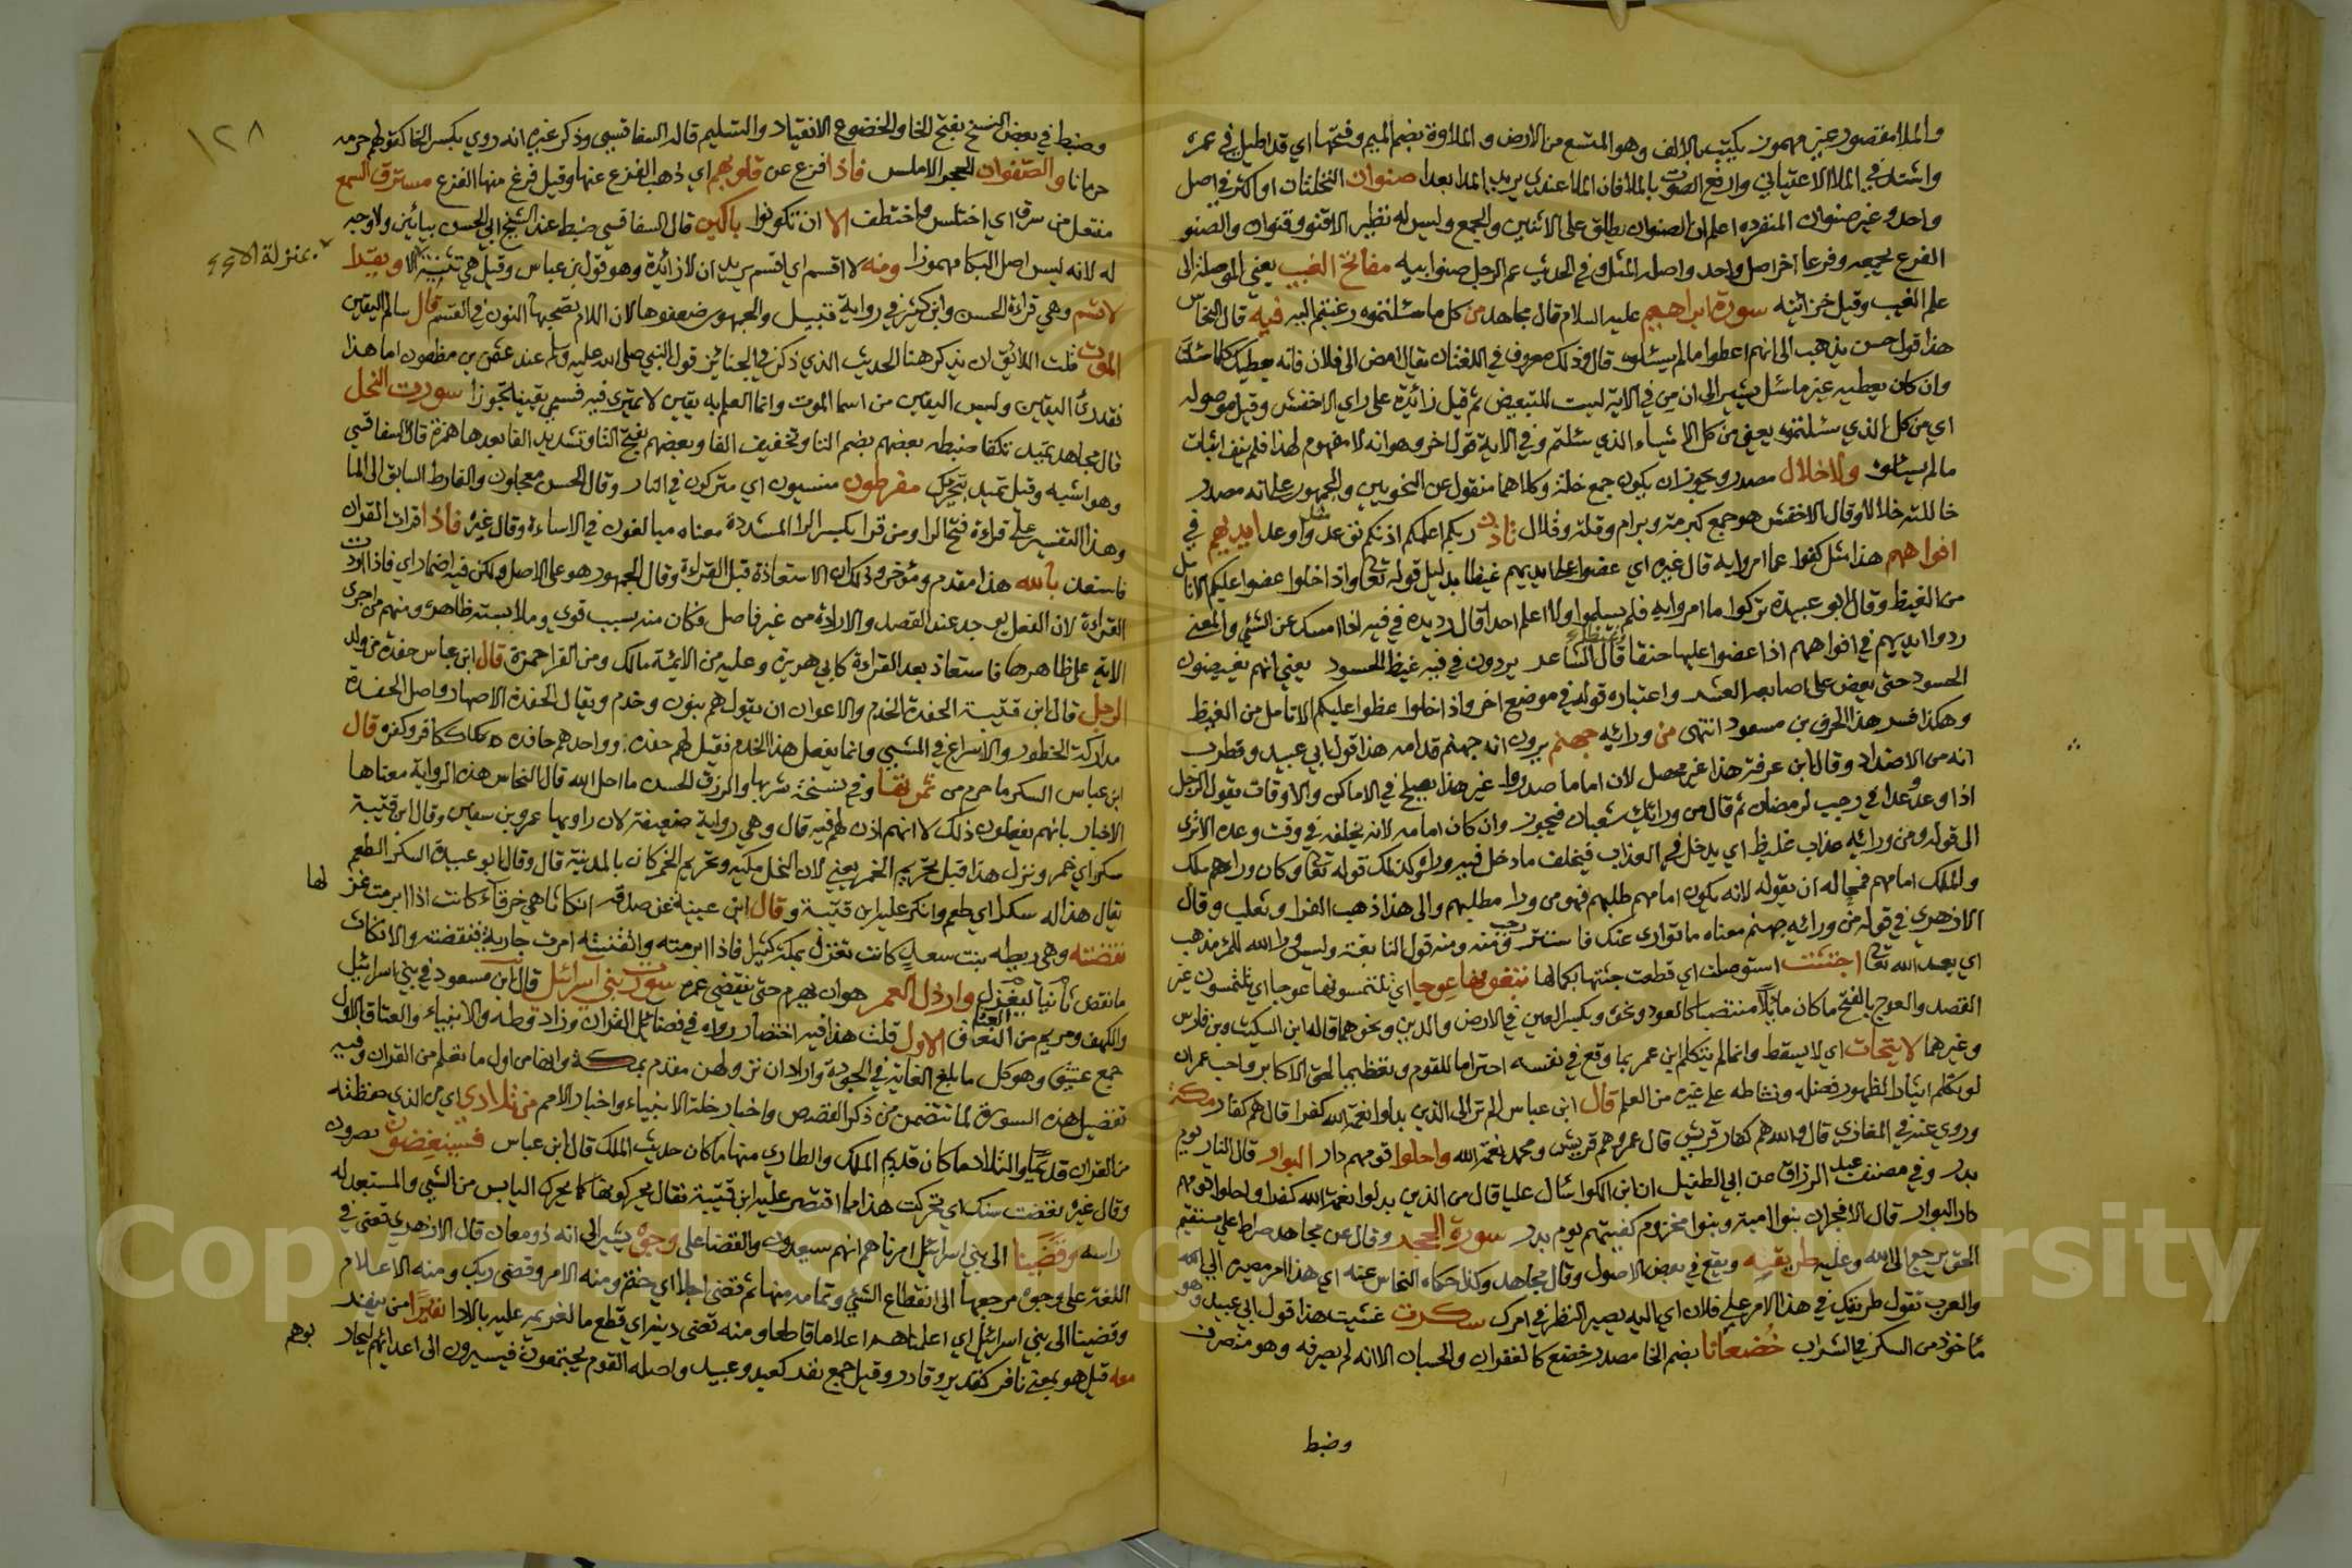 والملا مقصور غير مهموز يكتب بالالف وهو المتسع من الارض والملاوة بضم الميم وفتحها اي قد اطيل في عمره
واشتد في الملا الاعتياني وارفع الصوت بالملا فان الملا عندي يزيد المدا بعدا صنوان النخلتان او اكثر في اصل
واحد وغير صنوان المنفرده اعلم ان الصنوان يطلق على الاثنين والجمع وليس له نظير الا قنو وقنوان والصنو
الفرع يجمعه وفرعا اخر اصل واحد واصله المثل وفي الحديث عم الرجل صنو ابيه مفاتح الغيب يعني الموصلة الى
علم الغيب وقيل خزائنه سورة ابراهيم عليه السلام قال مجاهد من كل ما سئلتموه رغبتم اليه فيه قال النحاس
هذا قول حسن يذهب الى انهم اعطوا ما لم يسئلوه قال وذلك معروف في اللغة ان يقال امض الى فلان فانه يعطيك كلما سئلت
وان كان يعطيه غير ما سئل يشير الى ان من في الاية ليست للتبعيض ثم قيل زائدة على راي الاخفش وقيل موصوله
اي من كل الذي سئلتموه يعني من كل الاشياء الذي سئلتم وفي الاية قول اخر وهو انه لا مفهوم لهذا فلم ينف اثبات
ما لم يسئلوه ولا خلال مصدر ويجوز ان يكون جمع خلة وكلاهما منقول عن النحويين والجمهور على انه مصدر
خاللته خلالا وقال الاخفش هو جمع كبرمة وبرام وقلة وقلال تاذن ربكم اعلمكم اذنكم توعد مثل واوعد ايديهم في
افواههم هذا مثل كفوا عما امروا به قال غيره اي عضوا على ايديهم غيظا بدليل قوله تعا واذا خلوا عضوا عليكم الانامل
من الغيظ وقال ابو عبيدة تركوا ما امروا به فلم يسلموا ولا اعلم احدا قال رد يده في فيه اذا امسك عن الشئ والمعنى
ردوا ايديهم في افواههم اذا عضوا عليها حنقا وغيظا قال الشاعر يردون في فيه غيظ الحسود يعني انهم يغيضون
الحسود حتى يعض على اصابعه العشر واعتباره قوله في موضع اخر واذا خلوا عظوا عليكم الانامل من الغيظ
وهكذا فسر هذا الحرف بن مسعود انتهى من ورائه جهنم يرون انه جهنم قدامه هذا قول ابي عبيد وقطرب
انه من الاضداد وقال ابن عرفة هذا غير محصل لان اماما صدوراء غير هذا يصلح في الاماكن والاوقات يقول الرجل
اذا وعد وعدا في رجب لرمضان ثم قال من ورائك شعبان فيجوز وان كان امامه لانه يخلفه في وقت وعده الا ترى
الى قوله ومن ورائه عذاب غليظ اي يدخل في العذاب فيتخلف ما دخل فيه وراءه وكذلك قوله تعا وكان وراءهم ملك
والملك امامهم فجاله ان يقوله لانه يكون امامهم طلبهم فهو من وراء مطلبهم والى هذا ذهب الفرا وثعلب وقال
الازهري في قوله من ورائه جهنم معناه ما توارى عنك فاستتر ومنه قول النابغة وليس وراء الله للمرء مذهب
اي بعد الله تعا اجتثت استوصلت اي قطعت جثتها بكمالها تبغونها عوجا اي تلتمسونها عوجا اي تلتمسون غير
القصد والعوج بالفتح ما كان مائلا منتصبا كالعود ونحوه وبكسر العين في الارض والدين ونحوهما قاله ابن السكيت وبن فارس
وغيرهما لا يتحات اي لا يسقط وانما لم يتكلم ابن عمر بما وقع في نفسه احتراما للقوم وتعظيما لحق الاكابر واحب عمر ان
لو تكلم ايثارا لظهور فضله ونشاطه على غيره من العلم قال ابن عباس الم تر الى الذين بدلوا نعمة الله كفرا قال هم كفار مكة
وروي عنه في المغازي قال والله هم كفار قريش قال عمرو هم قريش ومحمد نعمة الله واحلوا قومهم دار البوار قال النار يوم
بدر وفي مصنف عبد الرزاق عن ابي الطفيل ان ابن الكوا سأل عليا قال من الذين بدلوا نعمة الله كفرا واحلوا قومهم
دار البوار قال الافجران بنوا امية وبنوا مخزوم كفيتهم يوم بدر سورة الحجر وقال عن مجاهد صراط علي مستقيم
الحق يرجع الى الله وعليه طريقه ويقع في بعض الاصول وقال مجاهد وكذا حكاه النحاس عنه اي هذا امر مصيره الى الله
والعرب تقول طريقك في هذا الامر على فلان اي اليه يصير النظر في امرك سكرت غشيت هذا قول ابي عبيد وهو
مأخوذ من السكر في الشراب خضعانا بضم الخا مصدر خضع كالغفران والحسبان الا انه لم يصرفه وهو منصرف
وضبط
١٢٨
وضبط في بعض النسخ بفتح الخا والخضوع الانقياد والتسليم قاله السفاقسي وذكر غيره انه روي بكسر الخا كقولهم حرمه
حرمانا والصفوان الحجر الاملس فاذا فزع عن قلوبهم اي ذهب الفزع عنها وقيل فرغ منها الفزع مسترق السمع
مفتعل من سرق اي اختلس واختطف الا ان تكونوا باكين قال السفاقسي ضبط عند الشيخ ابي الحسن بيائين ولا وجه
له لانه ليس اصل البكا مهموزا ومنه لا اقسم اي اقسم يريد ان لا زائدة وهو قول بن عباس وقيل هي تنبيه الا ويقرا
بمنزلة الا
لاقسم وهي قراءة الحسن وابن كثير في رواية قنبل والجمهور ضعفوها لان اللام تصحبها النون في القسم قال سالم اليقين
الموت قلت اللائق ان يذكر هنا الحديث الذي ذكره في الجنائز قول النبي صلى الله عليه وسلم عند عثمن بن مظعون اما هذا
فقد رأى اليقين وليس اليقين من اسما الموت وانما العلم به يقين لا يمترى فيه فسمي يقينا تجوزا سورت النحل
قال مجاهد تميد تكفا ضبطه بعضهم بضم التا وتخفيف الفا وبعضهم بفتح التا وتشديد الفا بعدها همزة قال السفاقسي
وهو اشبه وقيل تميد تتحرك مفرطون منسيون اي متركون في النار وقال الحسن معجلون والفارط السابق الى الما
وهذا التفسير على قراءة فتح الرا ومن قرا بكسر الرا المشددة معناه مبالغون في الاساءة وقال غيره فاذا قرات القران
فاستعذ بالله هذا مقدم ومؤخر وذلك ان الاستعاذة قبل القراءة وقال الجمهور هو على الاصل ولكن فيه اضمار اي فاذا اردت
القراءة لان الفعل يوجد عند القصد والارادة من غير فاصل وكان منه بسبب قوي وملابسته ظاهرة ومنهم من اجرى
الاية على ظاهرها فاستعاذ بعد القراءة كابي هريرة وعليه من الائمة مالك ومن القرا حمزة قال ابن عباس حفدة من ولد
الرجل قال ابن قتيبة الحفدة الخدم والاعوان ان يقول هم بنون وخدم ويقال الحفدة الاصهار واصل الحفدة
مداركة الخطو والاسراع في المشي وانما يفعل هذا الخدم فقيل لهم حفدة وواحدهم حافده ككافر وكفرة قال
ابن عباس السكر ما حرم من ثمرتها وفي نسخة شربها والرزق الحسن ما احل الله قال النحاس هذه الرواية معناها
الاخبار بانهم يفعلون ذلك لا انهم اذن لهم فيه قال وهي رواية ضعيفة لان راويها عمرو بن سفين وقال ابن قتيبة
سكرا اي خمر ونزل هذا قبل تحريم الخمر يعني لان النحل مكيه وتحريم الخمر كان بالمدينة قال وقال ابو عبيدة السكر الطعم
يقال هذا له سكرا اي طعم وانكر عليه ابن قتيبة وقال ابن عيينة عن صدقه انكاثا هي خرقاء كانت اذا ابرمت غز لها
نقضته وهي ريطه بنت سعد كانت تغزل بمكة كثيل فاذا ابرمته واتقنته امرت جارية فنقضته والانكاث
ما نقض ثانيا ليغزل وارذل العمر هو ان يهرم حتى ينقضي عمره سورة بني اسرائيل قال ابن مسعود في بني اسرائيل
والكهف ومريم من العتاق الاول قلت هذا فيه اختصار رواه في فضائل القران وزاد وطه والانبياء والعتاق الاول
جمع عتيق وهو كل ما بلغ الغاية في الجودة واراد ان نزولهن مقدم بمكة وانها من اول ما تعلم من القران وفيه
تفضيل هذه السورة لما تتضمن من ذكر القصص واخبار جلة الانبياء واخبار الامم من تلادي اي من الذي حفظته
من القران قديما والتلاد ما كان قديم الملك والطارئ منها ما كان حديث الملك قال ابن عباس فسينغضون يهزون
وقال غيره نغضت سنك اي تحركت هذا مما اقتصر عليه ابن قتيبة فقال يحركونها كما يحرك اليابس من الشئ والمستبعد له
راسه وقضينا الى بني اسرائيل امرناهم انهم سيعدون والقضا على وجوه يشير الى انه ذو معان قال الازهري قضى في
اللغة على وجوه مرجعها الى انقطاع الشئ وتمامه منها ثم قضى اجلا اي حتم ومنه الامر وقضى ربك ومنه الاعلام
وقضينا الى بني اسرائيل اي اعلمناهم اعلاما قاطعا ومنه قضى دينه اي قطع ما لغريمه عليه بالادا نفيرا من ينفر
معه قيل هو بمعنى نافر كقدير وقادر وقيل جمع نفر كعبد وعبيد واصله القوم يجتمعون فيسيرون الى اعدائهم ليحار بوهم
Copyright © King Saud University